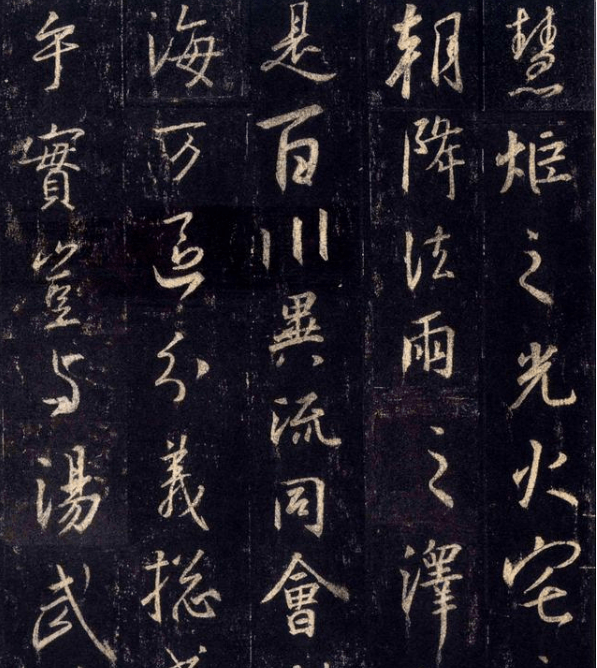 慧炬之光火宅
朝降法雨之澤
是百川異流同會
海万區分義揔
乎實豈与湯武